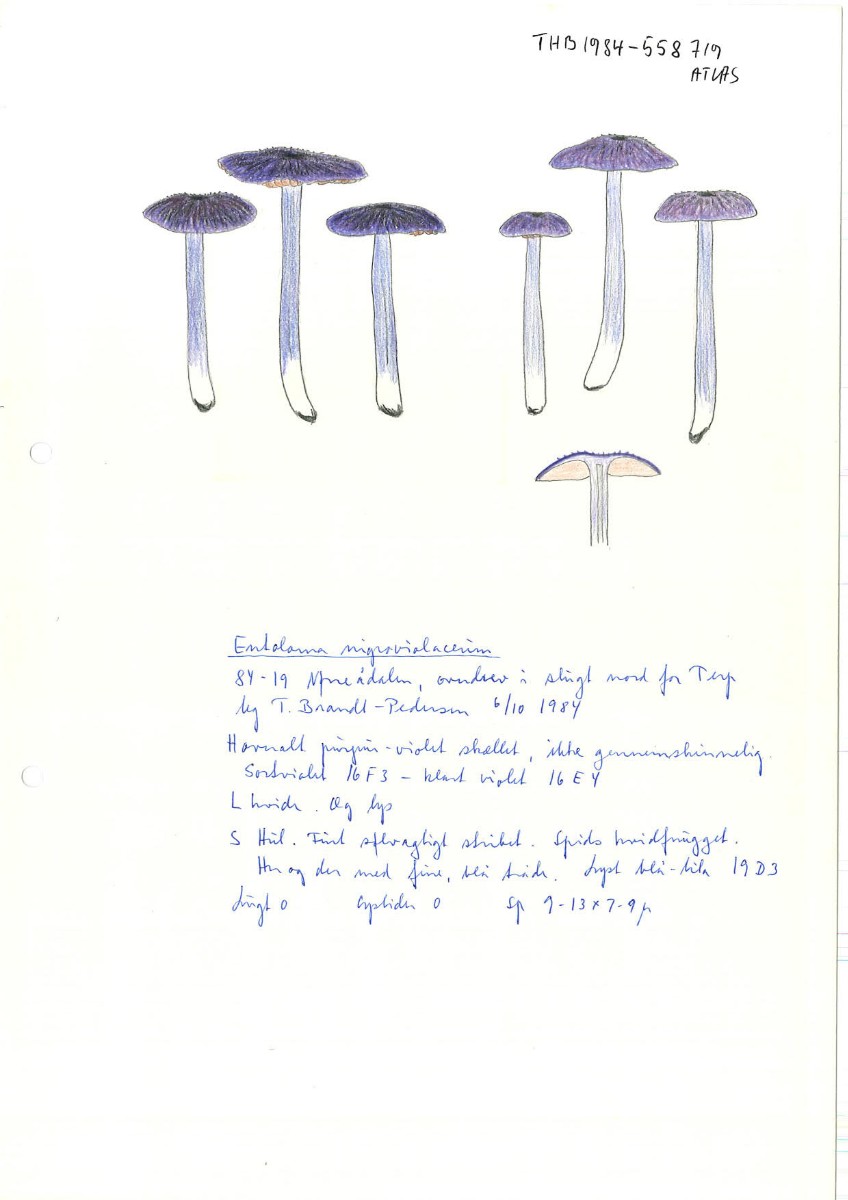 THB1984-558 719
ATLAS
Entoloma nigroviolaceum
84-19 overdrev i slugt nord for Terp
leg T. Brandt-Pedersen 6/10 1984
Hat purpur-violet skællet, ikke gennemskinnelig.
Sortviolet 16F3 - klart violet 16E4
L hvide. Æg lys
S Hul. Fint stribet. Spids hvidfnugget.
Her og der med fine, blå tråde. Lyst blå-lilla 19D3
Lugt 0 Cystider 0 Sp 9-13×7-9μ